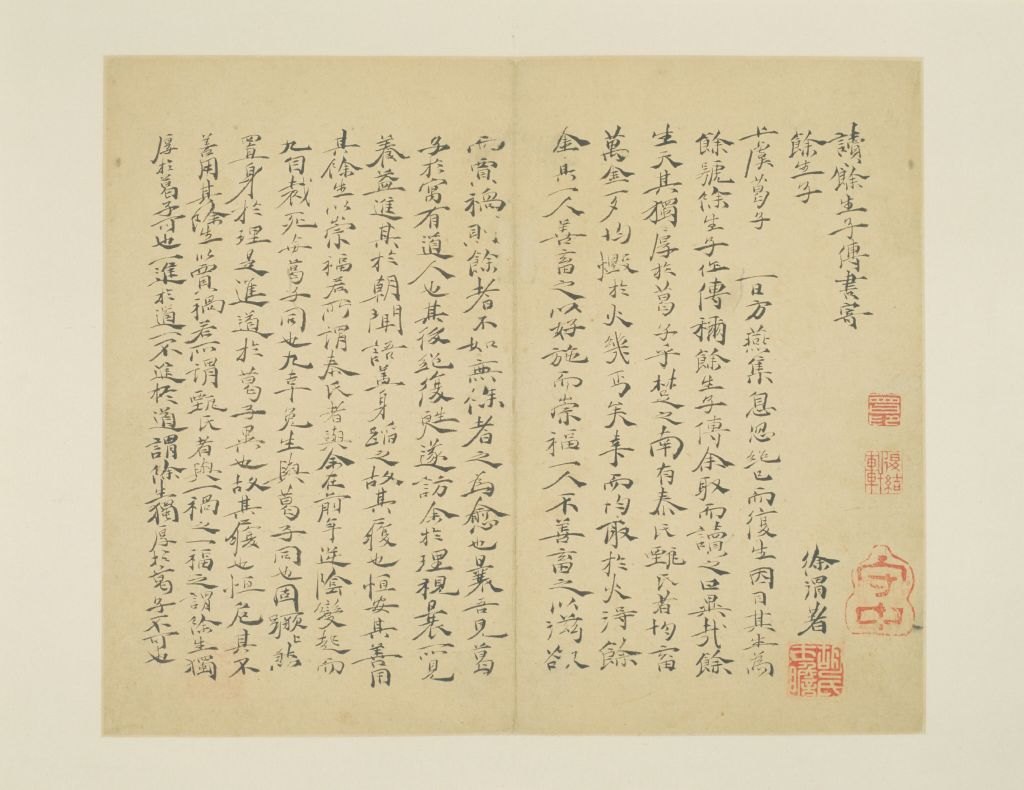 讀餘生子傳書寄
餘生子
徐渭著
上虞葛子 一日方燕集息忽絕已而復生因目其生為
餘號餘生子作傳稱餘生子傳余取而讀之曰異哉餘
生天其獨厚於葛子乎楚之南有秦氏甄氏者均畜
萬金一夕均燬於火幾丐矣來而均取於火得餘
金焉一人善畜之以好施而崇福一人不善畜之以滋欲
而賈禍則餘者不如無餘者之為愈也曩吾見葛
子於寓有道人也其後絕復甦遂訪余於理視曩所見
養益進其於朝聞語蓋身蹈之故其復也恒安其善用
其餘生以崇福若所謂秦氏者與余在前年迷陰變起而
九自裁死每葛子同也九幸免生與葛子同也固獗於
置身於理是進道於葛子異也故其復也恒危其不
善用其餘生以賈禍若所謂甄氏者與一禍之一福之謂餘生獨
厚於葛子可也一進於道一不進於道謂餘生獨厚於葛子不可也
守中